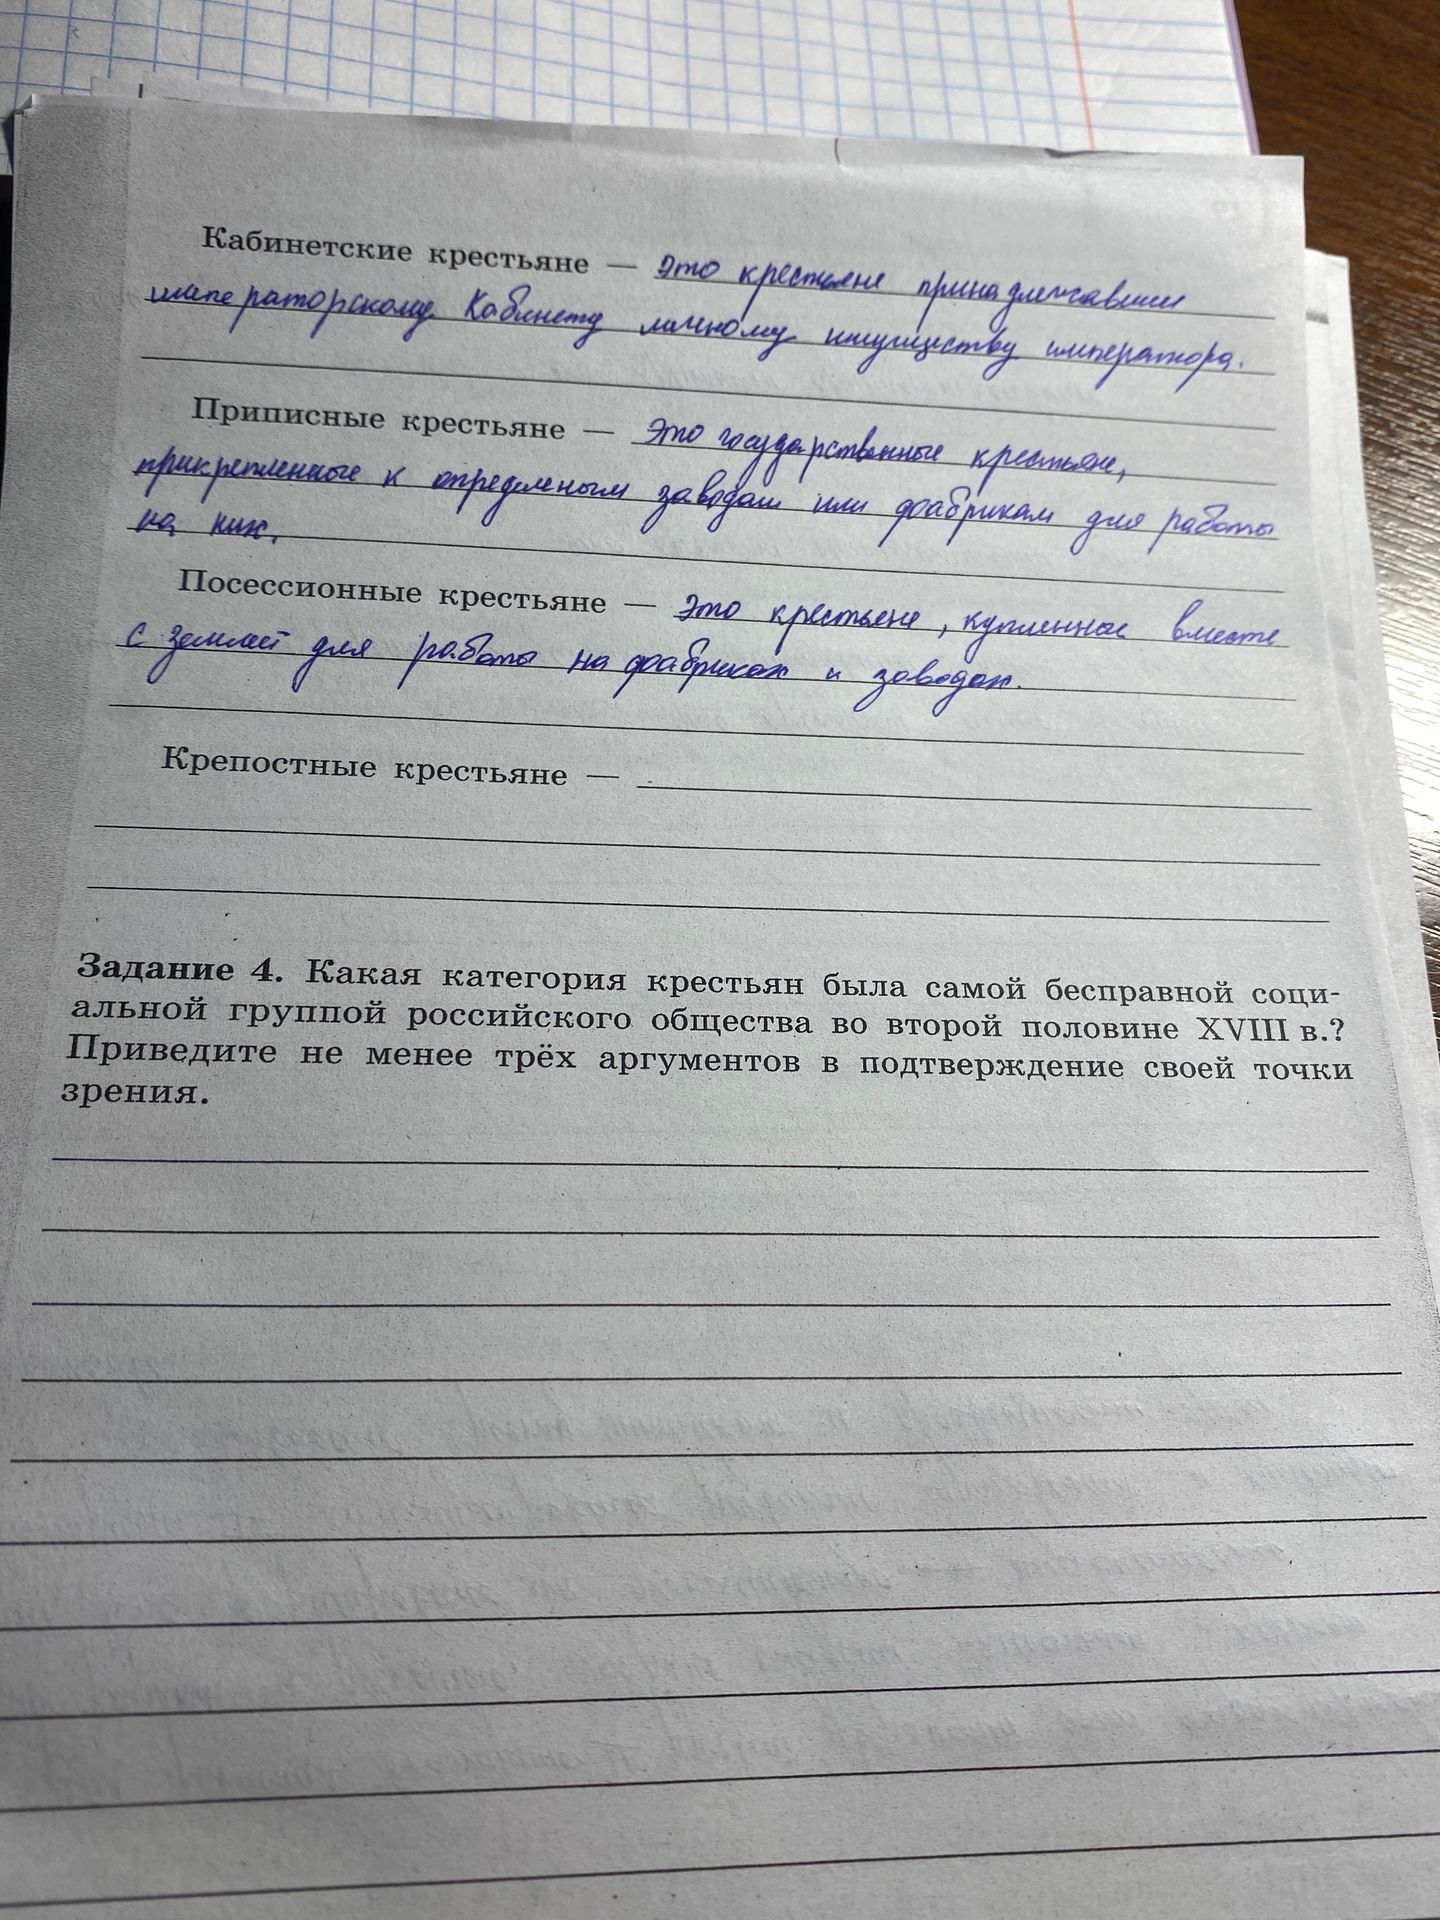 Кабинетские крестьяне — это крестьяне принадлежавшие
императорскому Кабинету личному имуществу императора.
Приписные крестьяне — это государственные крестьяне,
прикрепленные к определеным заводам или фабрикам для работы
на них.
Посессионные крестьяне — это крестьяне, купленные вместе
с землёй для работы на фабриках и заводах.
Крепостные крестьяне —
Задание 4. Какая категория крестьян была самой бесправной соци-
альной группой российского общества во второй половине XVIII в.?
Приведите не менее трёх аргументов в подтверждение своей точки
зрения.